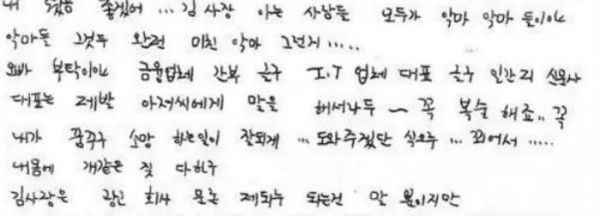 좋겠어 ... 김 사장 아는 사람들 모두가 악마 악마 들이야
악마들 그것두 완전 미친 악마 그런거 .....
오빠 부탁이야 금융업체 간부 I.T 업체 대표 신문사
대표는 제발 아저씨에게 말을 해서나두 ~ 꼭 복수 해죠.. 꼭
내가 꿈꾸구 소망 하는일이 잘되게 ... 도와주겠단 식으루 ... 꾀어서 .....
내몸에 개같은 짓 다하구
김사장은 회사 되는건 말 뿐이지만